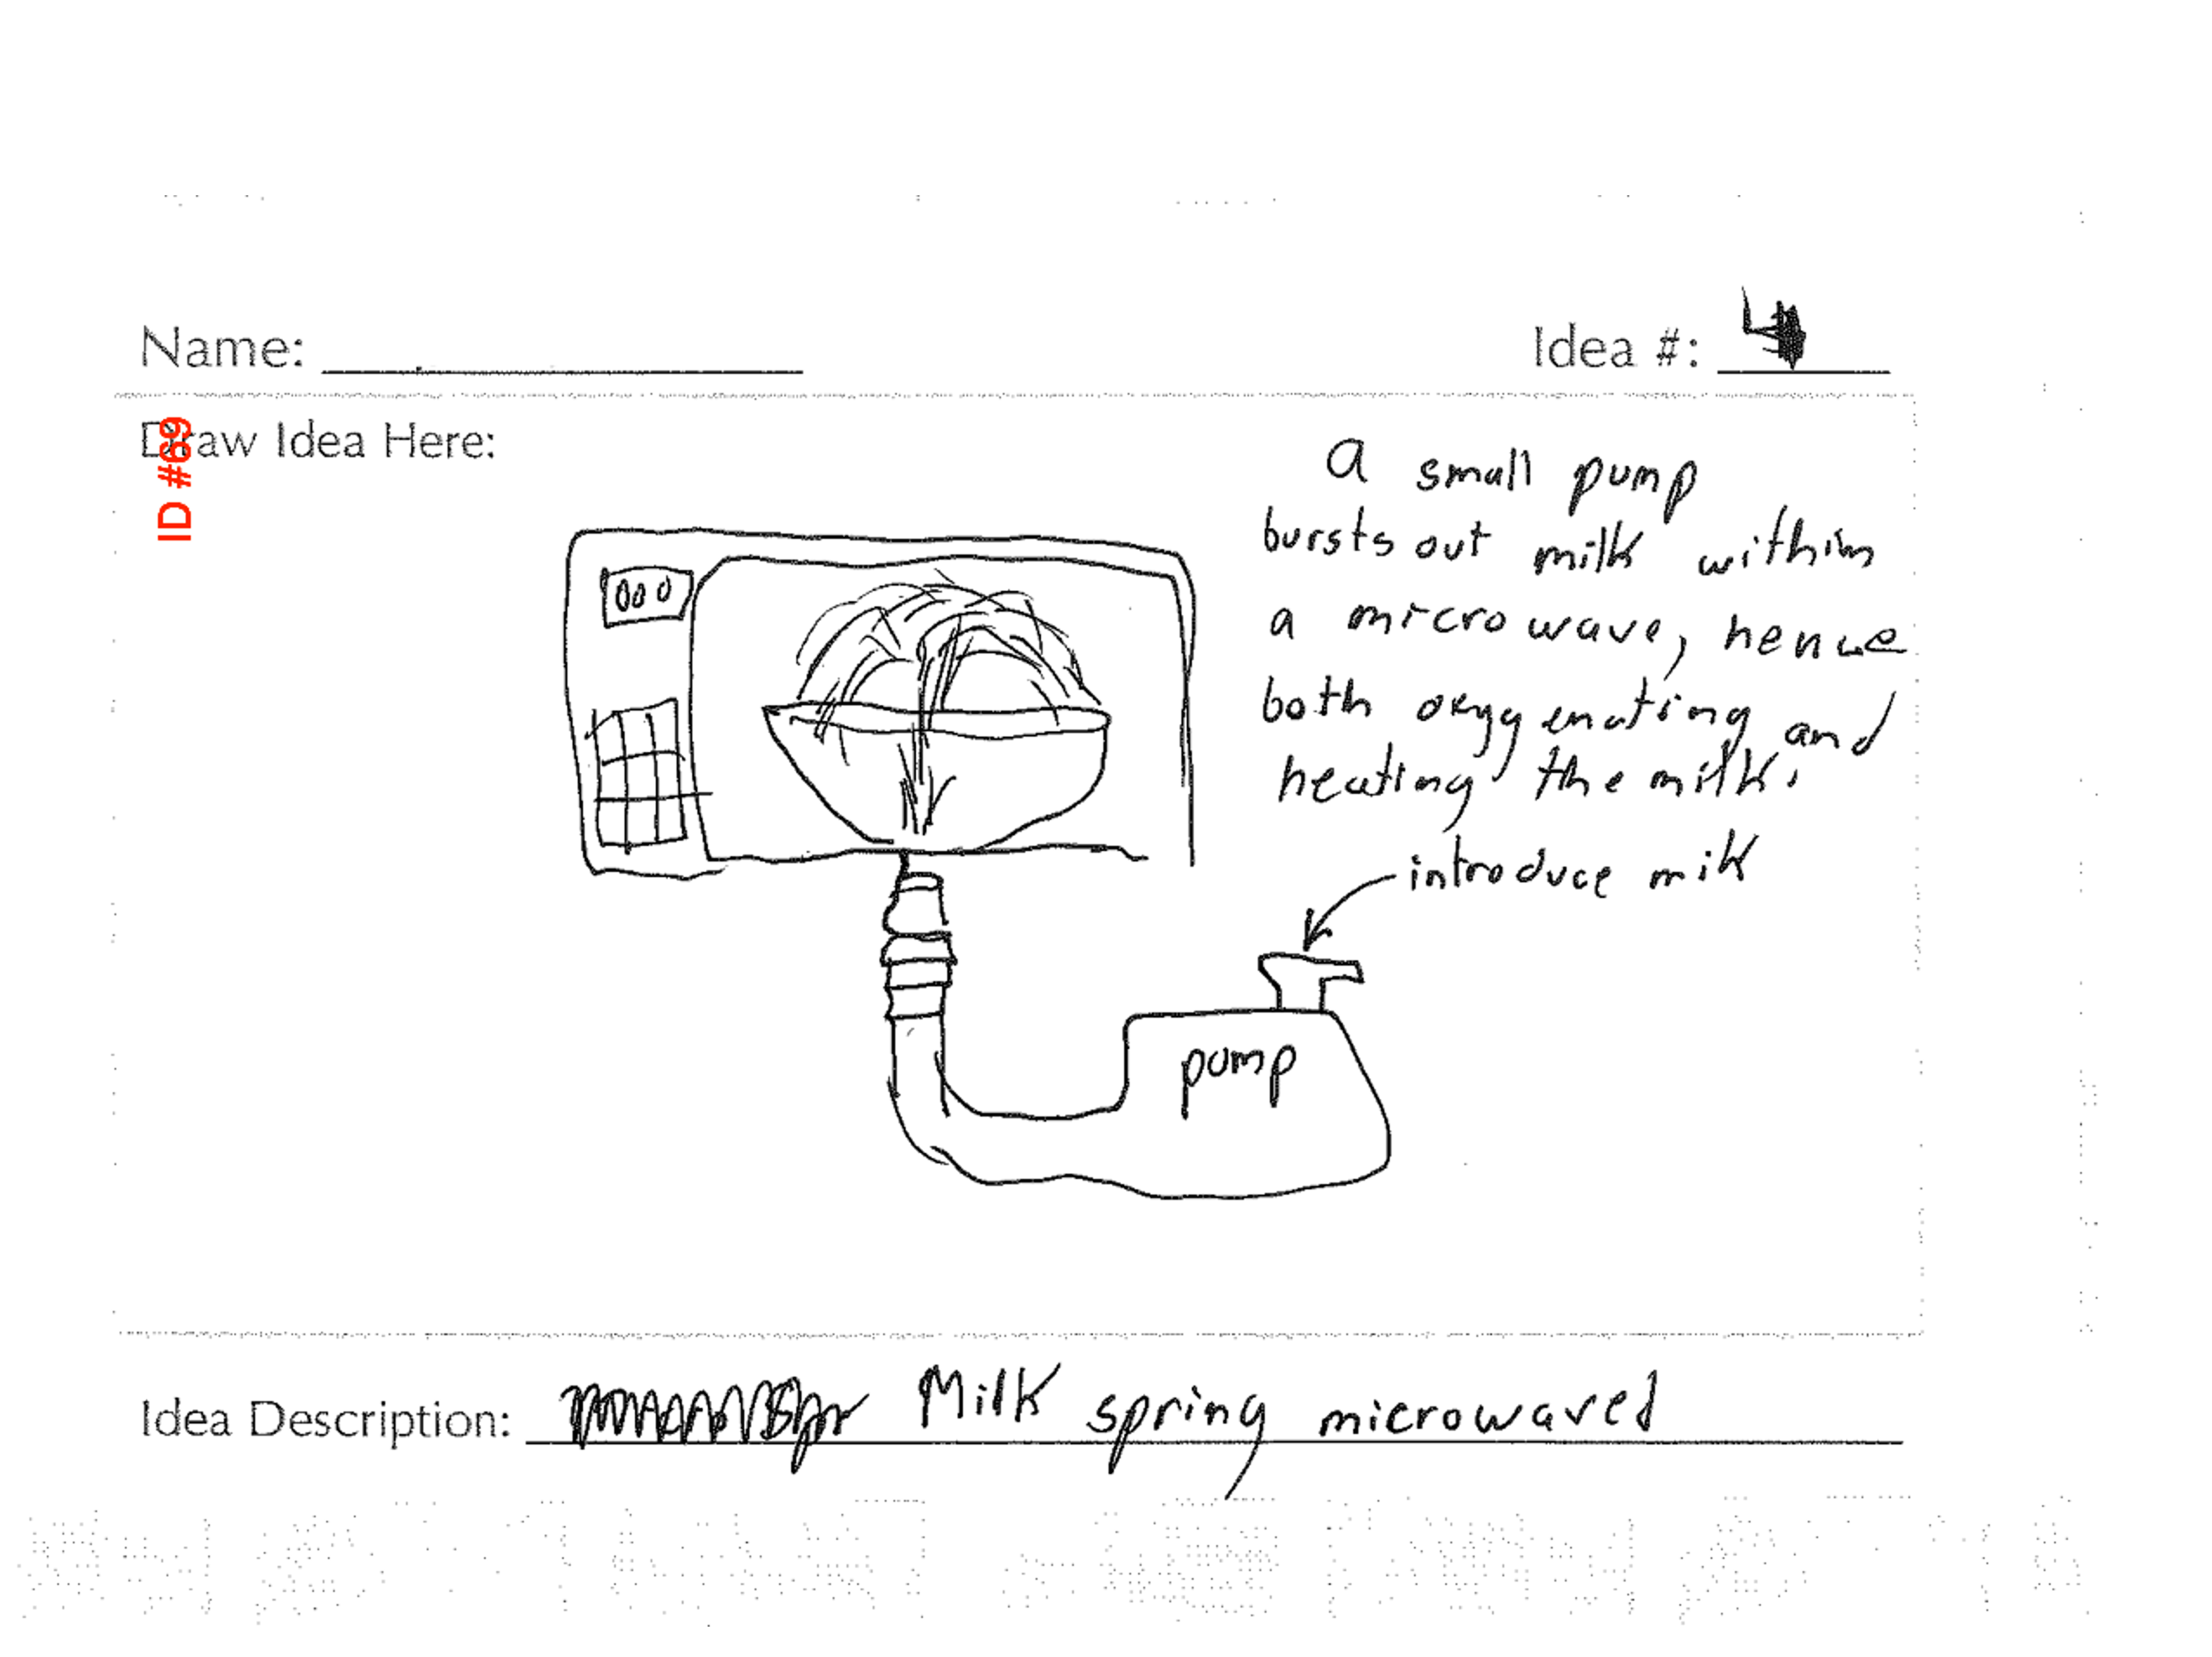 Name:
Idea #: 4
ID #69
Draw Idea Here:
a small pump
bursts out milk within
a microwave, hence
both oxygenating and
heating the milk.
introduce mik
000
pump
Idea Description: Milk spring microwaved